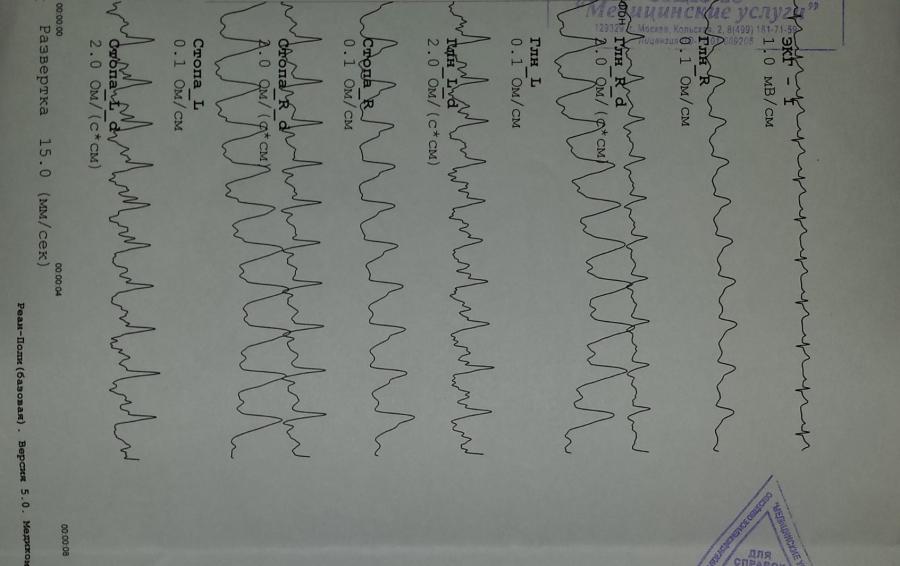 "Медицинские услуги"
129329 г. Москва, Кольская, 2, 8(499)
ФОН
ЭКГ - I
1.0 мВ/см
Глн_R
0.1 Ом/см
Глн_R_d
2.0 Ом/(с*см)
Глн_L
0.1 Ом/см
Глн_L_d
2.0 Ом/(с*см)
Стопа_R
0.1 Ом/см
Стопа_R_d
2.0 Ом/(с*см)
Стопа_L
0.1 Ом/см
Стопа_L_d
2.0 Ом/(с*см)
00:00:00
00:00:04
00:00:08
Развертка 15.0 (мм/сек)
Реан-Поли(базовая). Версия 5.0.
ДЛЯ